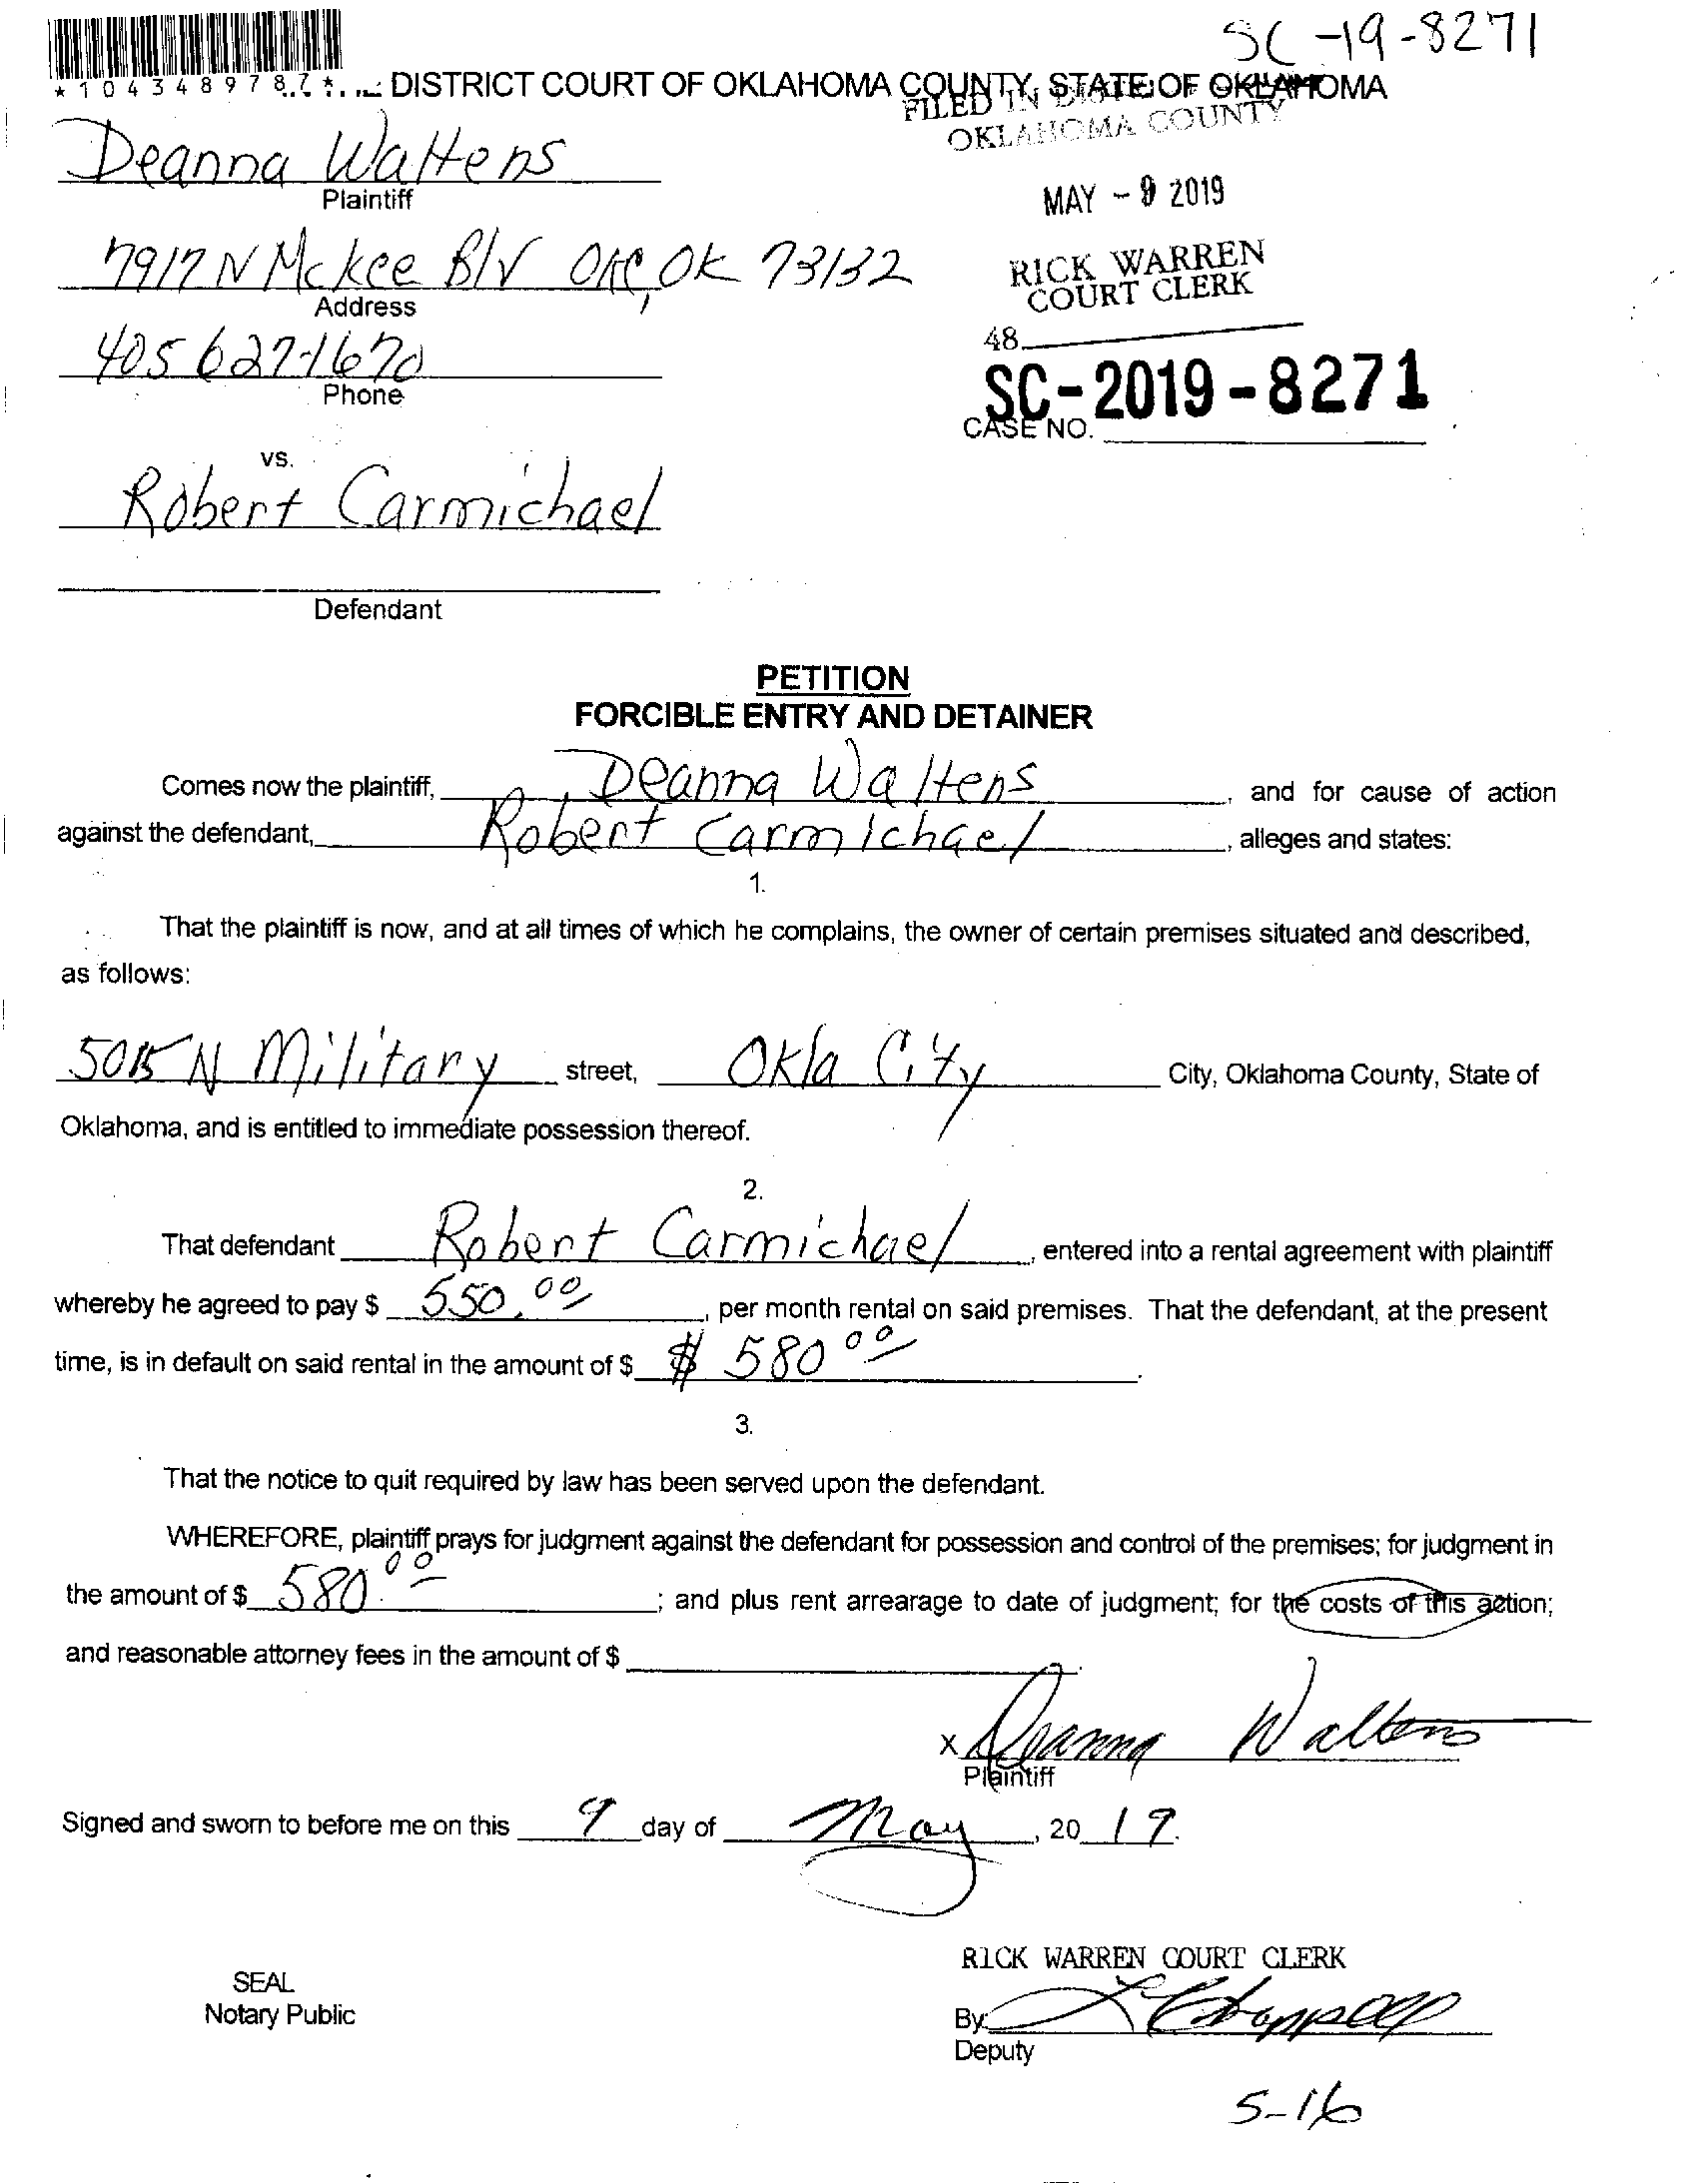 SC-19-8271
*1043489787*
DISTRICT COURT OF OKLAHOMA COUNTY, STATE OF OKLAHOMA
FILED IN
OKLAHOMA COUNTY
Deanna Walters
Plaintiff
MAY - 9 2019
7917 N McKee Blv OKC, OK 73132
Address
RICK WARREN
COURT CLERK
405 627-1670
Phone
48
SC-2019-8271
CASE NO.
vs.
Robert Carmichael
Defendant
PETITION
FORCIBLE ENTRY AND DETAINER
Comes now the plaintiff, Deanna Walters, and for cause of action
against the defendant, Robert Carmichael, alleges and states:
1.
That the plaintiff is now, and at all times of which he complains, the owner of certain premises situated and described,
as follows:
5015 N Military street, Okla City City, Oklahoma County, State of
Oklahoma, and is entitled to immediate possession thereof.
2.
That defendant Robert Carmichael, entered into a rental agreement with plaintiff
whereby he agreed to pay $ 550.00, per month rental on said premises. That the defendant, at the present
time, is in default on said rental in the amount of $ $ 580 00.
3.
That the notice to quit required by law has been served upon the defendant.
WHEREFORE, plaintiff prays for judgment against the defendant for possession and control of the premises; for judgment in
the amount of $ 580.00; and plus rent arrearage to date of judgment; for the costs of this action;
and reasonable attorney fees in the amount of $
x Deanna Walters
Plaintiff
Signed and sworn to before me on this 9 day of May, 2019.
RICK WARREN COURT CLERK
SEAL
Notary Public
By: L Chappell
Deputy
5-16